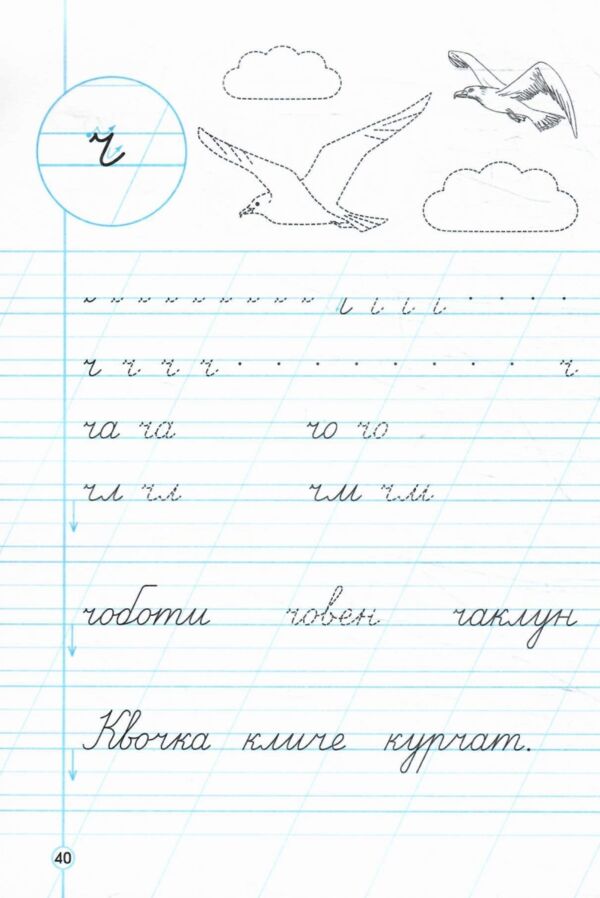 ч
ч ч ч ч ч
ча ча чо чо
чл чл чм чм
чоботи човен чаклун
Квочка кличе курчат.
40